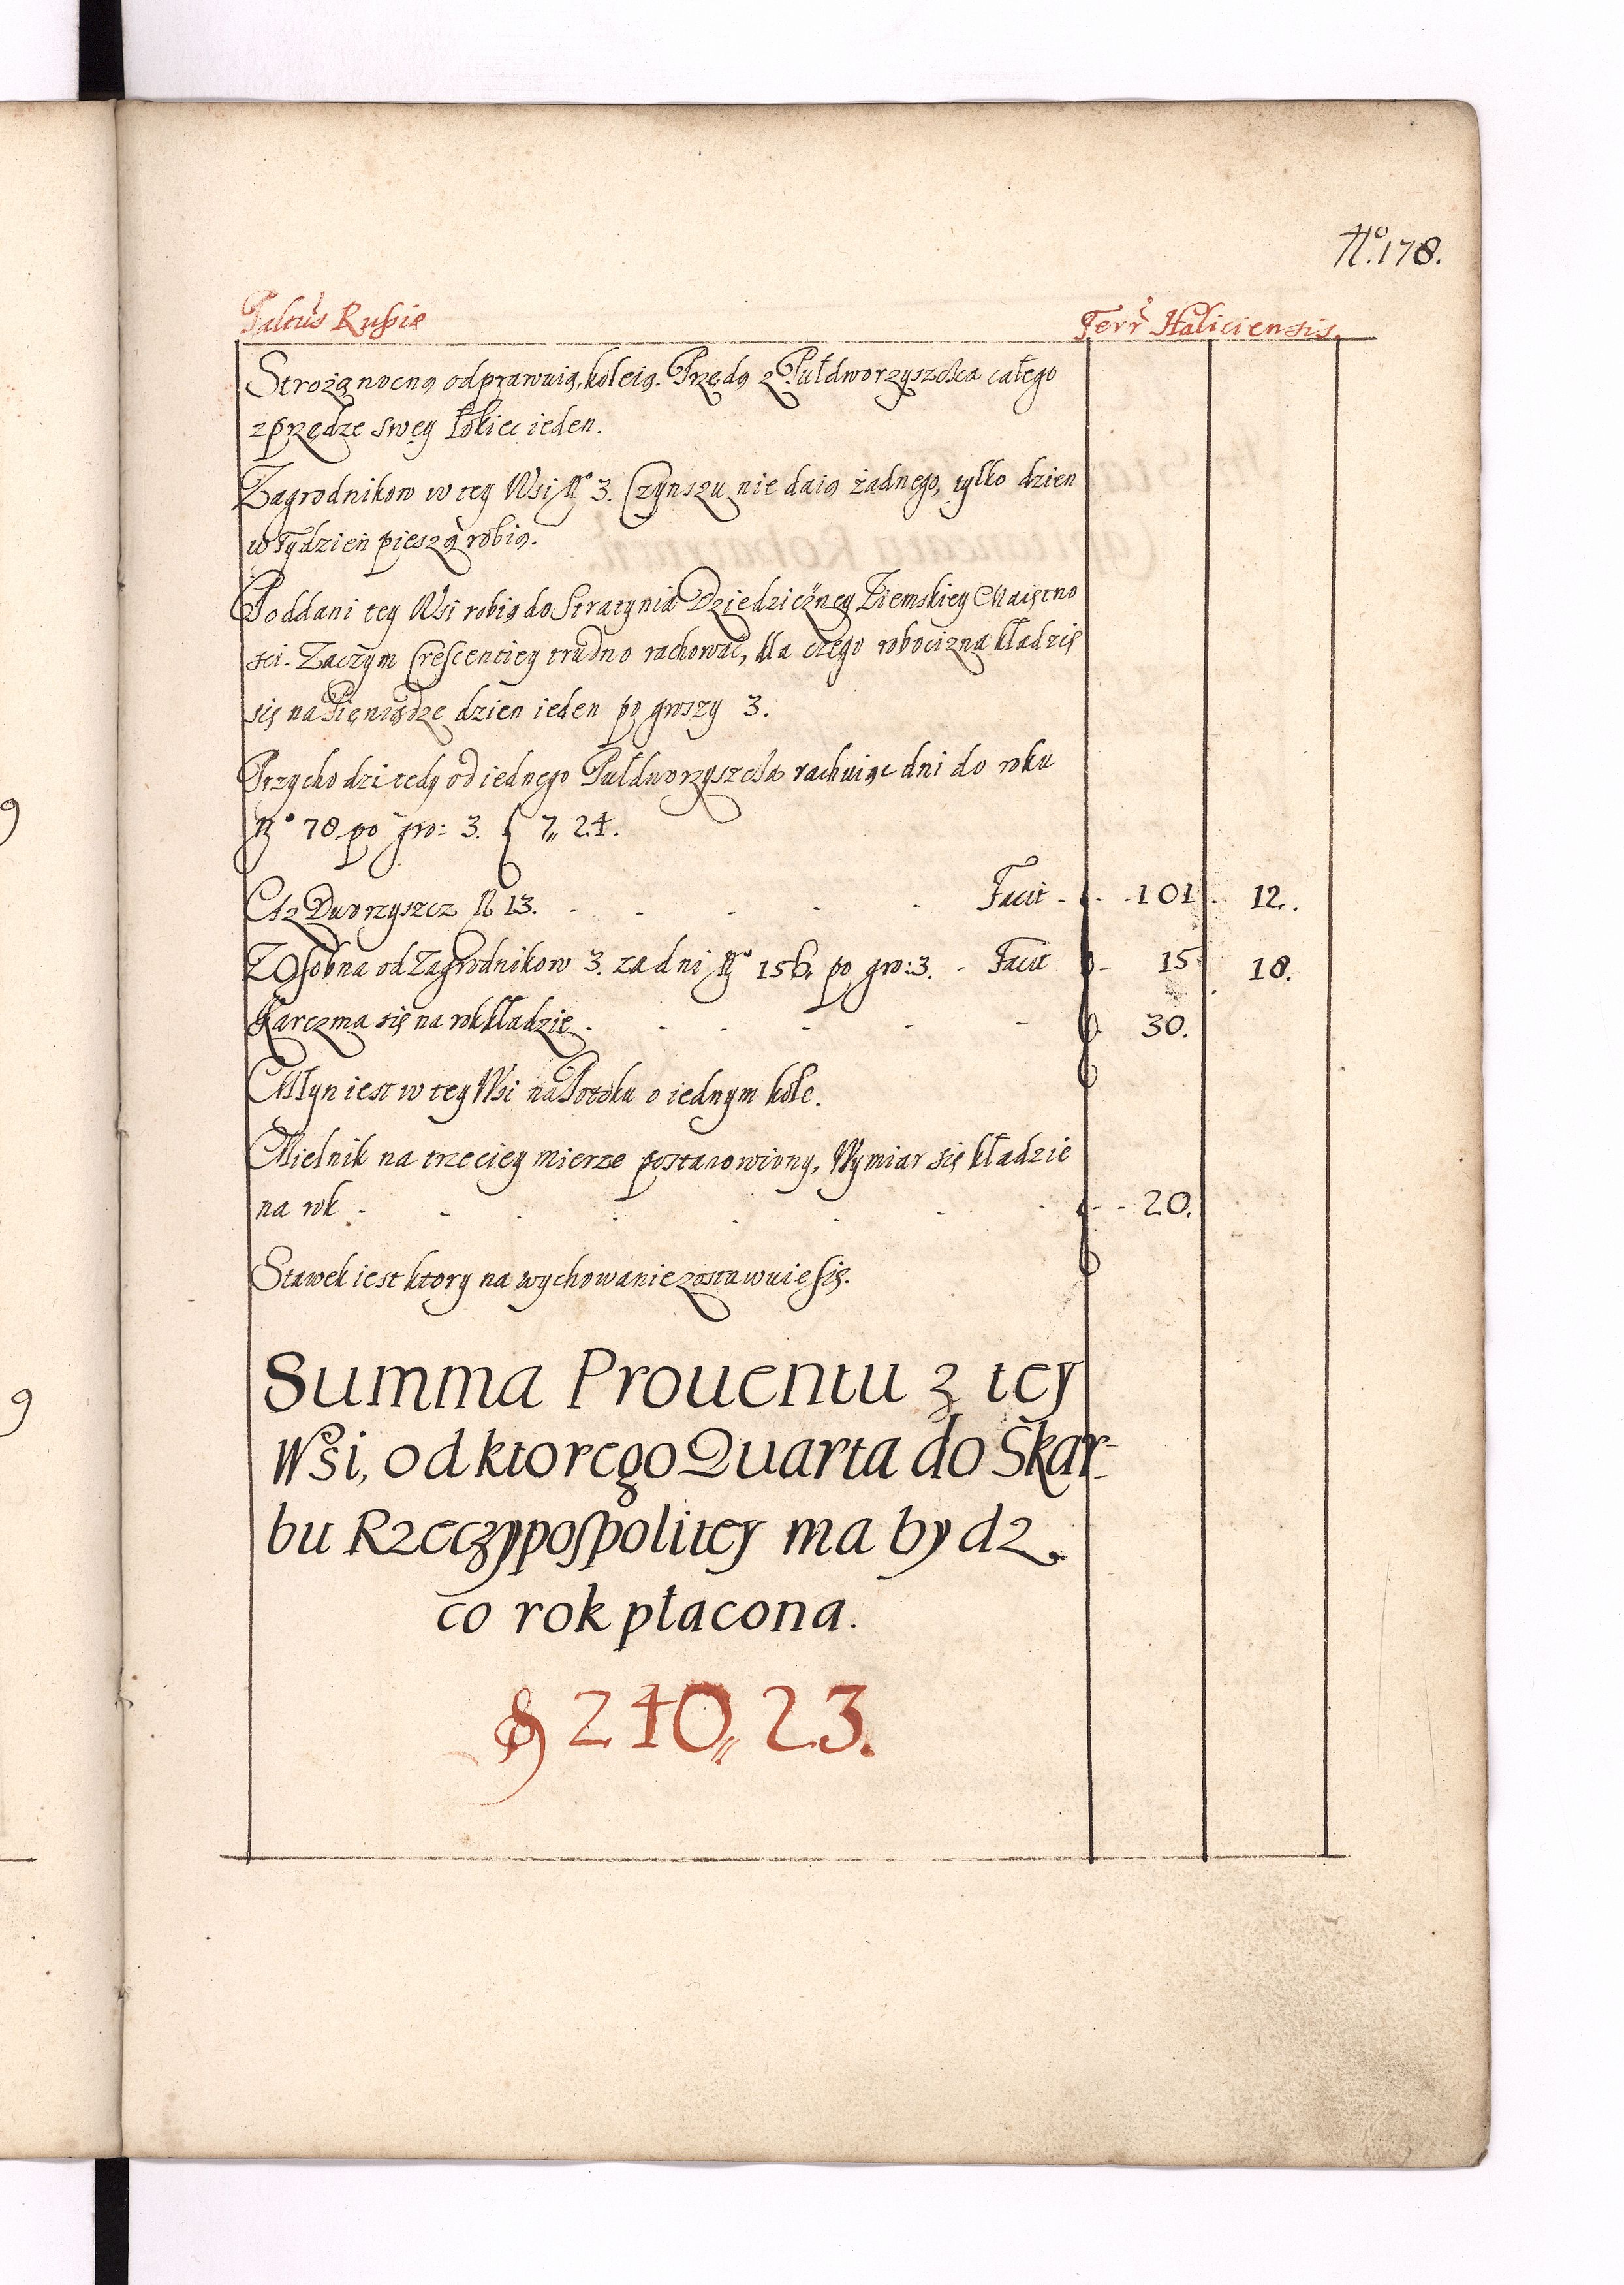 No. 178.
Paltus Russię Terr Haliciensis.
Strożą nocną odprawuią, koleią. Przędą z Pułdworzyszcza całego
z przędze swey łokiec ieden.
Zagrodnikow w tey Wsi No 3. Czynszu nie daią żadnego, tylko dzien
w Tydzień pieszą robią.
Poddani tey Wsi robią do Stratynia Dziedziczney Ziemskiey Maiętno
sci. Zaczym Crescentiey trudno rachować, dla czego robocizna kładzię
się na Pieniądze dzien ieden po groszy 3.
Przychodzi tedy od iednego Pułdworzyszcza rachuiąc dni do roku
No 78 po gro: 3. f 7,, 24.
A z Dworzyszcz No 13. Facit 101 12.
Z Osobna od Zagrodnikow 3. za dni No 156. po gro: 3. Facit 15 18.
Karczma się na rok kładzie 30.
Młyn iest w tey Wsi na Potoku o iednym kole.
Mielnik na trzeciey mierze postanowiony, Wymiar się kładzie
na rok 20.
Stawek iest ktory na wychowanie zostawuie się.
Summa Prouentu z tey
Wsi, od ktorego Quarta do Skar-
bu Rzeczypospolitey ma bydz
co rok płacona.
f 240,, 23.